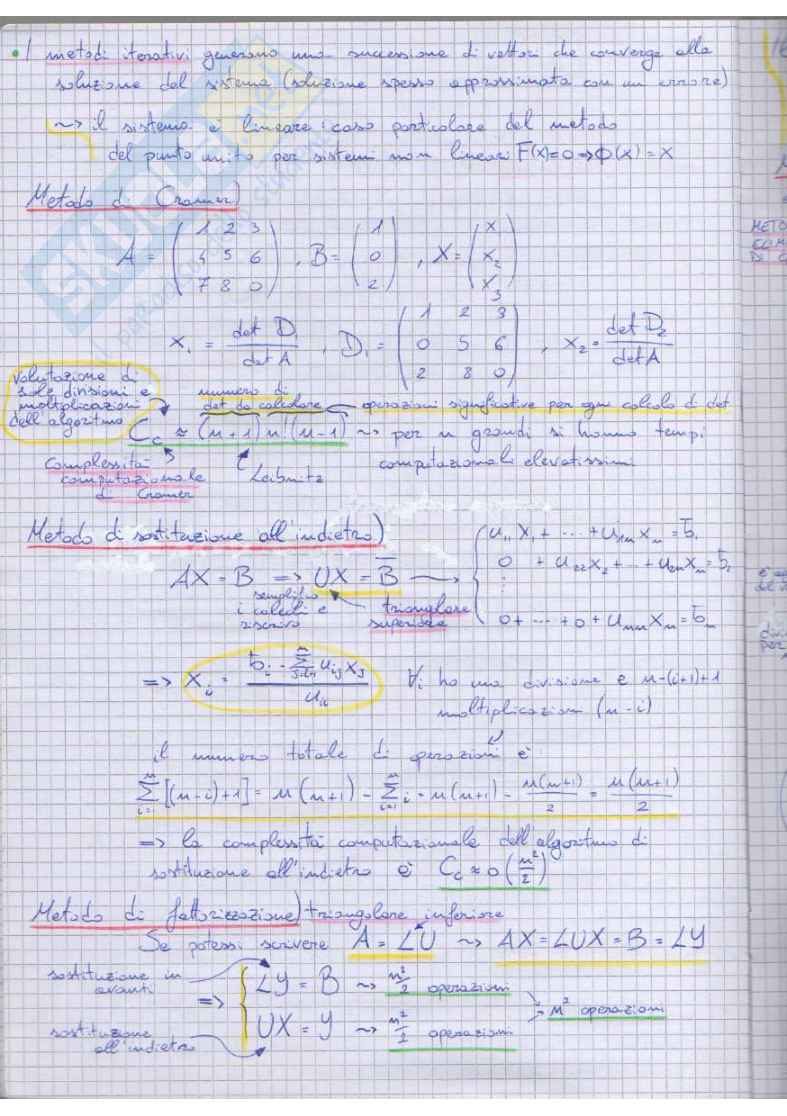 • I metodi iterativi generano una successione di vettori che converge alla
soluzione del sistema (soluzione spesso approssimata con un errore)
~> il sistema è lineare: caso particolare del metodo
del punto unito per sistemi non lineari F(x)=0 => Φ(x)=x
Metodo di Cramer)
A = ( 1 2 3 / 4 5 6 / 7 8 0 ) , B = ( 1 / 0 / 2 ) , X = ( x / x₂ / x₃ )
x₁ = det D₁ / det A , D₁ = ( 1 2 3 / 0 5 6 / 2 8 0 ) , x₂ = det D₂ / det A
Valutazione di
sole divisioni e
moltiplicazioni
dell'algoritmo
numero di
det da calcolare
operazioni significative per ogni calcolo di det
C_c ≈ (n+1) n! (n-1) ~> per n grandi si hanno tempi
computazionali elevatissimi
Complessità
computazionale
di Cramer
Leibnitz
Metodo di sostituzione all'indietro)
AX = B => UX = B̄
semplifico
i calcoli e
riscrivo
triangolare
superiore
u₁₁x₁ + ··· + u₁ₙxₙ = b̄₁
0 + u₂₂x₂ + ·· + u₂ₙxₙ = b̄₂
⋮
0 + ··· + 0 + uₙₙxₙ = b̄ₙ
=> xᵢ = (b̄ᵢ - Σⁿ j=i+1 uᵢⱼxⱼ) / uᵢᵢ ∀i ho una divisione e n-(i+1)+1
moltiplicazioni (n-i)
il numero totale di operazioni è
Σⁿ i=1 [(n-i)+1] = n(n+1) - Σⁿ i=1 i = n(n+1) - n(n+1)/2 = n(n+1)/2
=> la complessità computazionale dell'algoritmo di
sostituzione all'indietro è C_c ≈ o(n²/2)
Metodo di fattorizzazione) triangolare inferiore
Se potessi scrivere A = LU ~> AX = LUX = B = LY
sostituzione in
avanti
=> { LY = B ~> n²/2 operazioni
UX = Y ~> n²/2 operazioni
> n² operazioni
sostituzione
all'indietro
SKUOLA.net
METO
COM
DI C